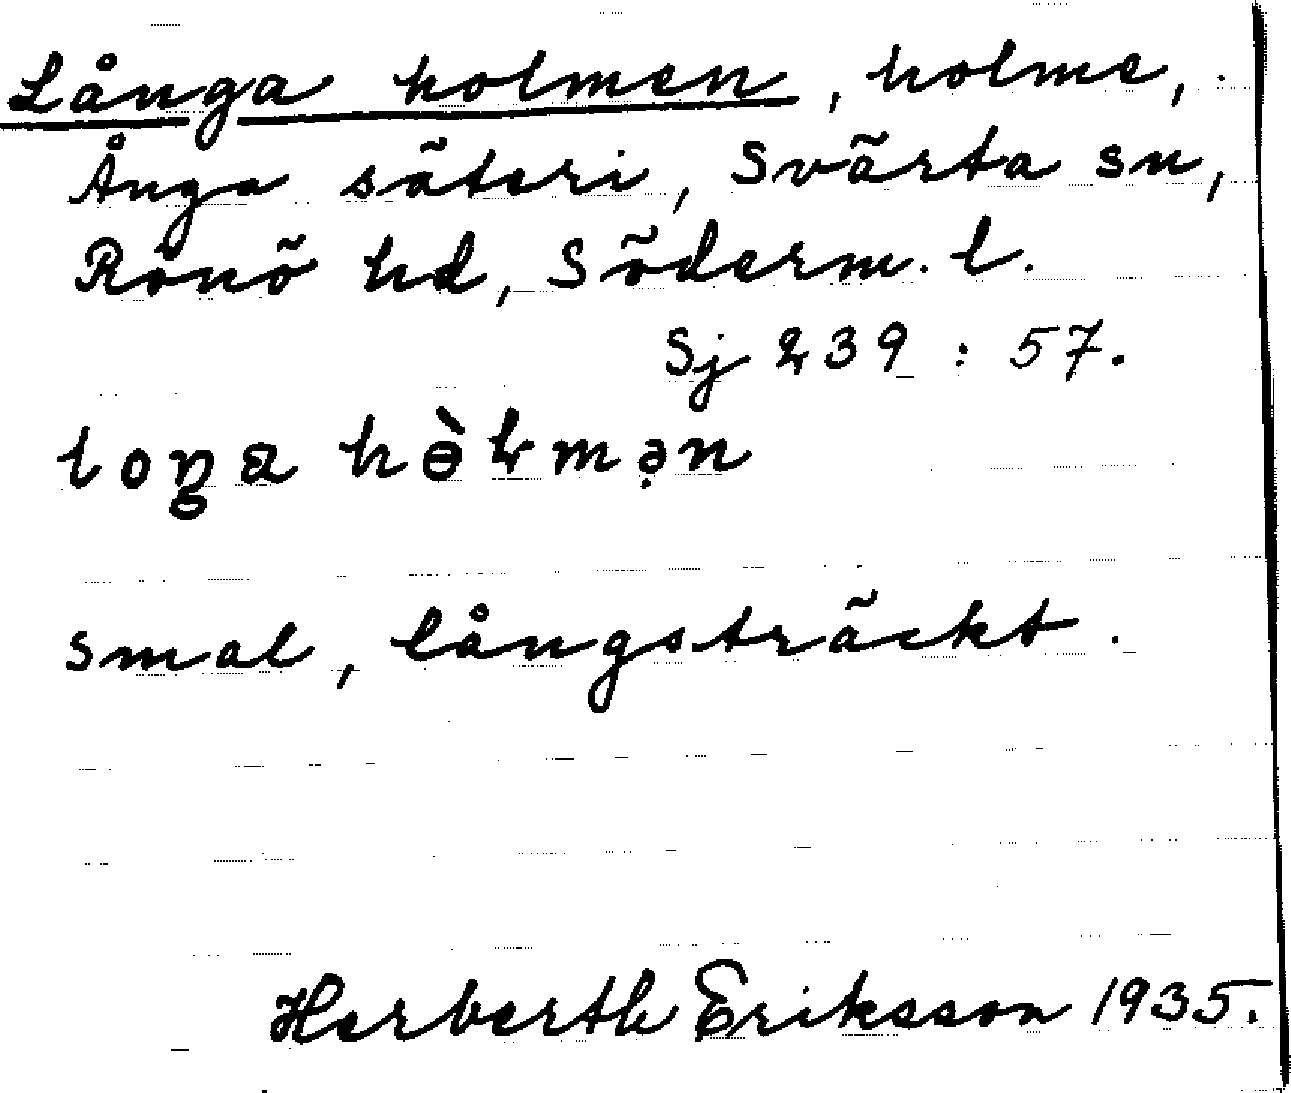 Långa holmen, holme,
Ånga säteri, Svärta sn,
Rönö hd, Söderm. l.
Sj 239 : 57.
loŋa hɵ̀ɫmə̣n
smal, långsträckt.
Herberth Eriksson 1935.